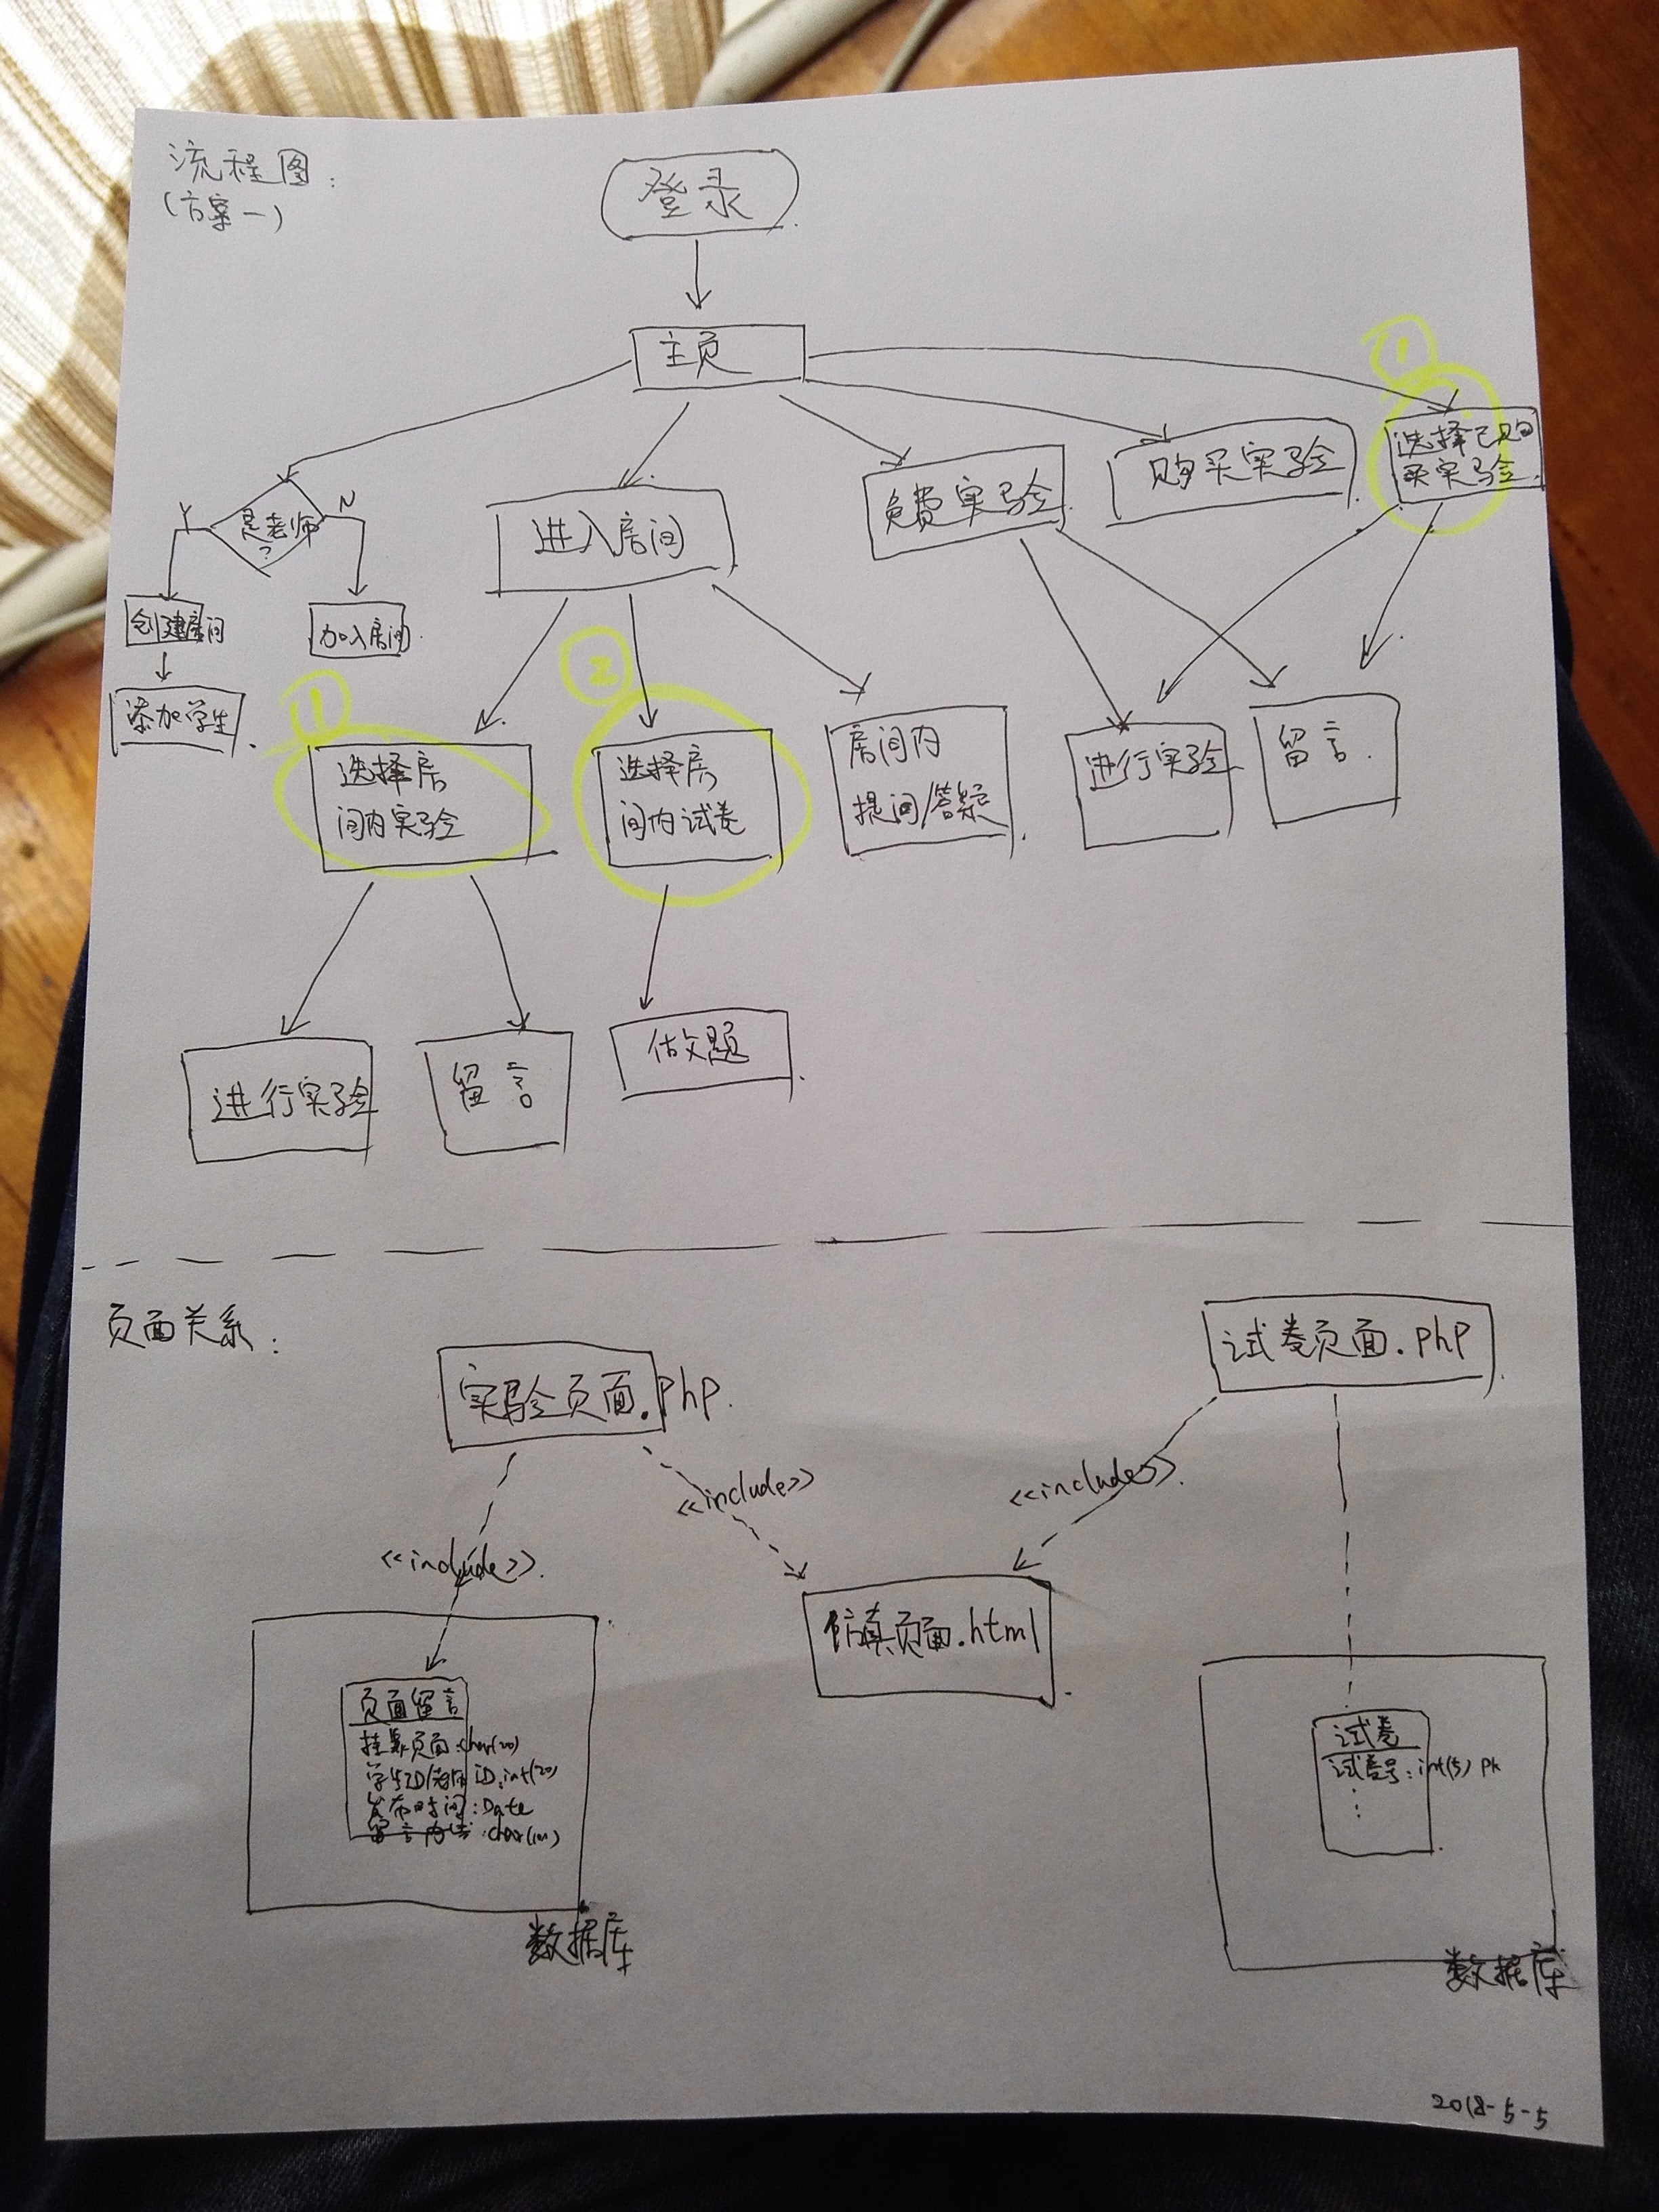 流程图:
(方案一)
登录
主页
①
选择已购
买实验
购买实验
免费实验
进入房间
是老师
?
Y
N
创建房间
加入房间
添加学生
①
选择房
间内实验
②
选择房
间内试卷
房间内
提问/答疑
进行实验
留言
进行实验
留言
做题
页面关系:
实验页面.php
试卷页面.php
<<include>>
<<include>>
<<include>>
仿真页面.html
页面留言
挂靠页面:char(20)
学生ID/老师ID:int(20)
发布时间:Date
留言内容:char(100)
数据库
试卷
试卷号:int(5) PK
⋮
数据库
2018-5-5